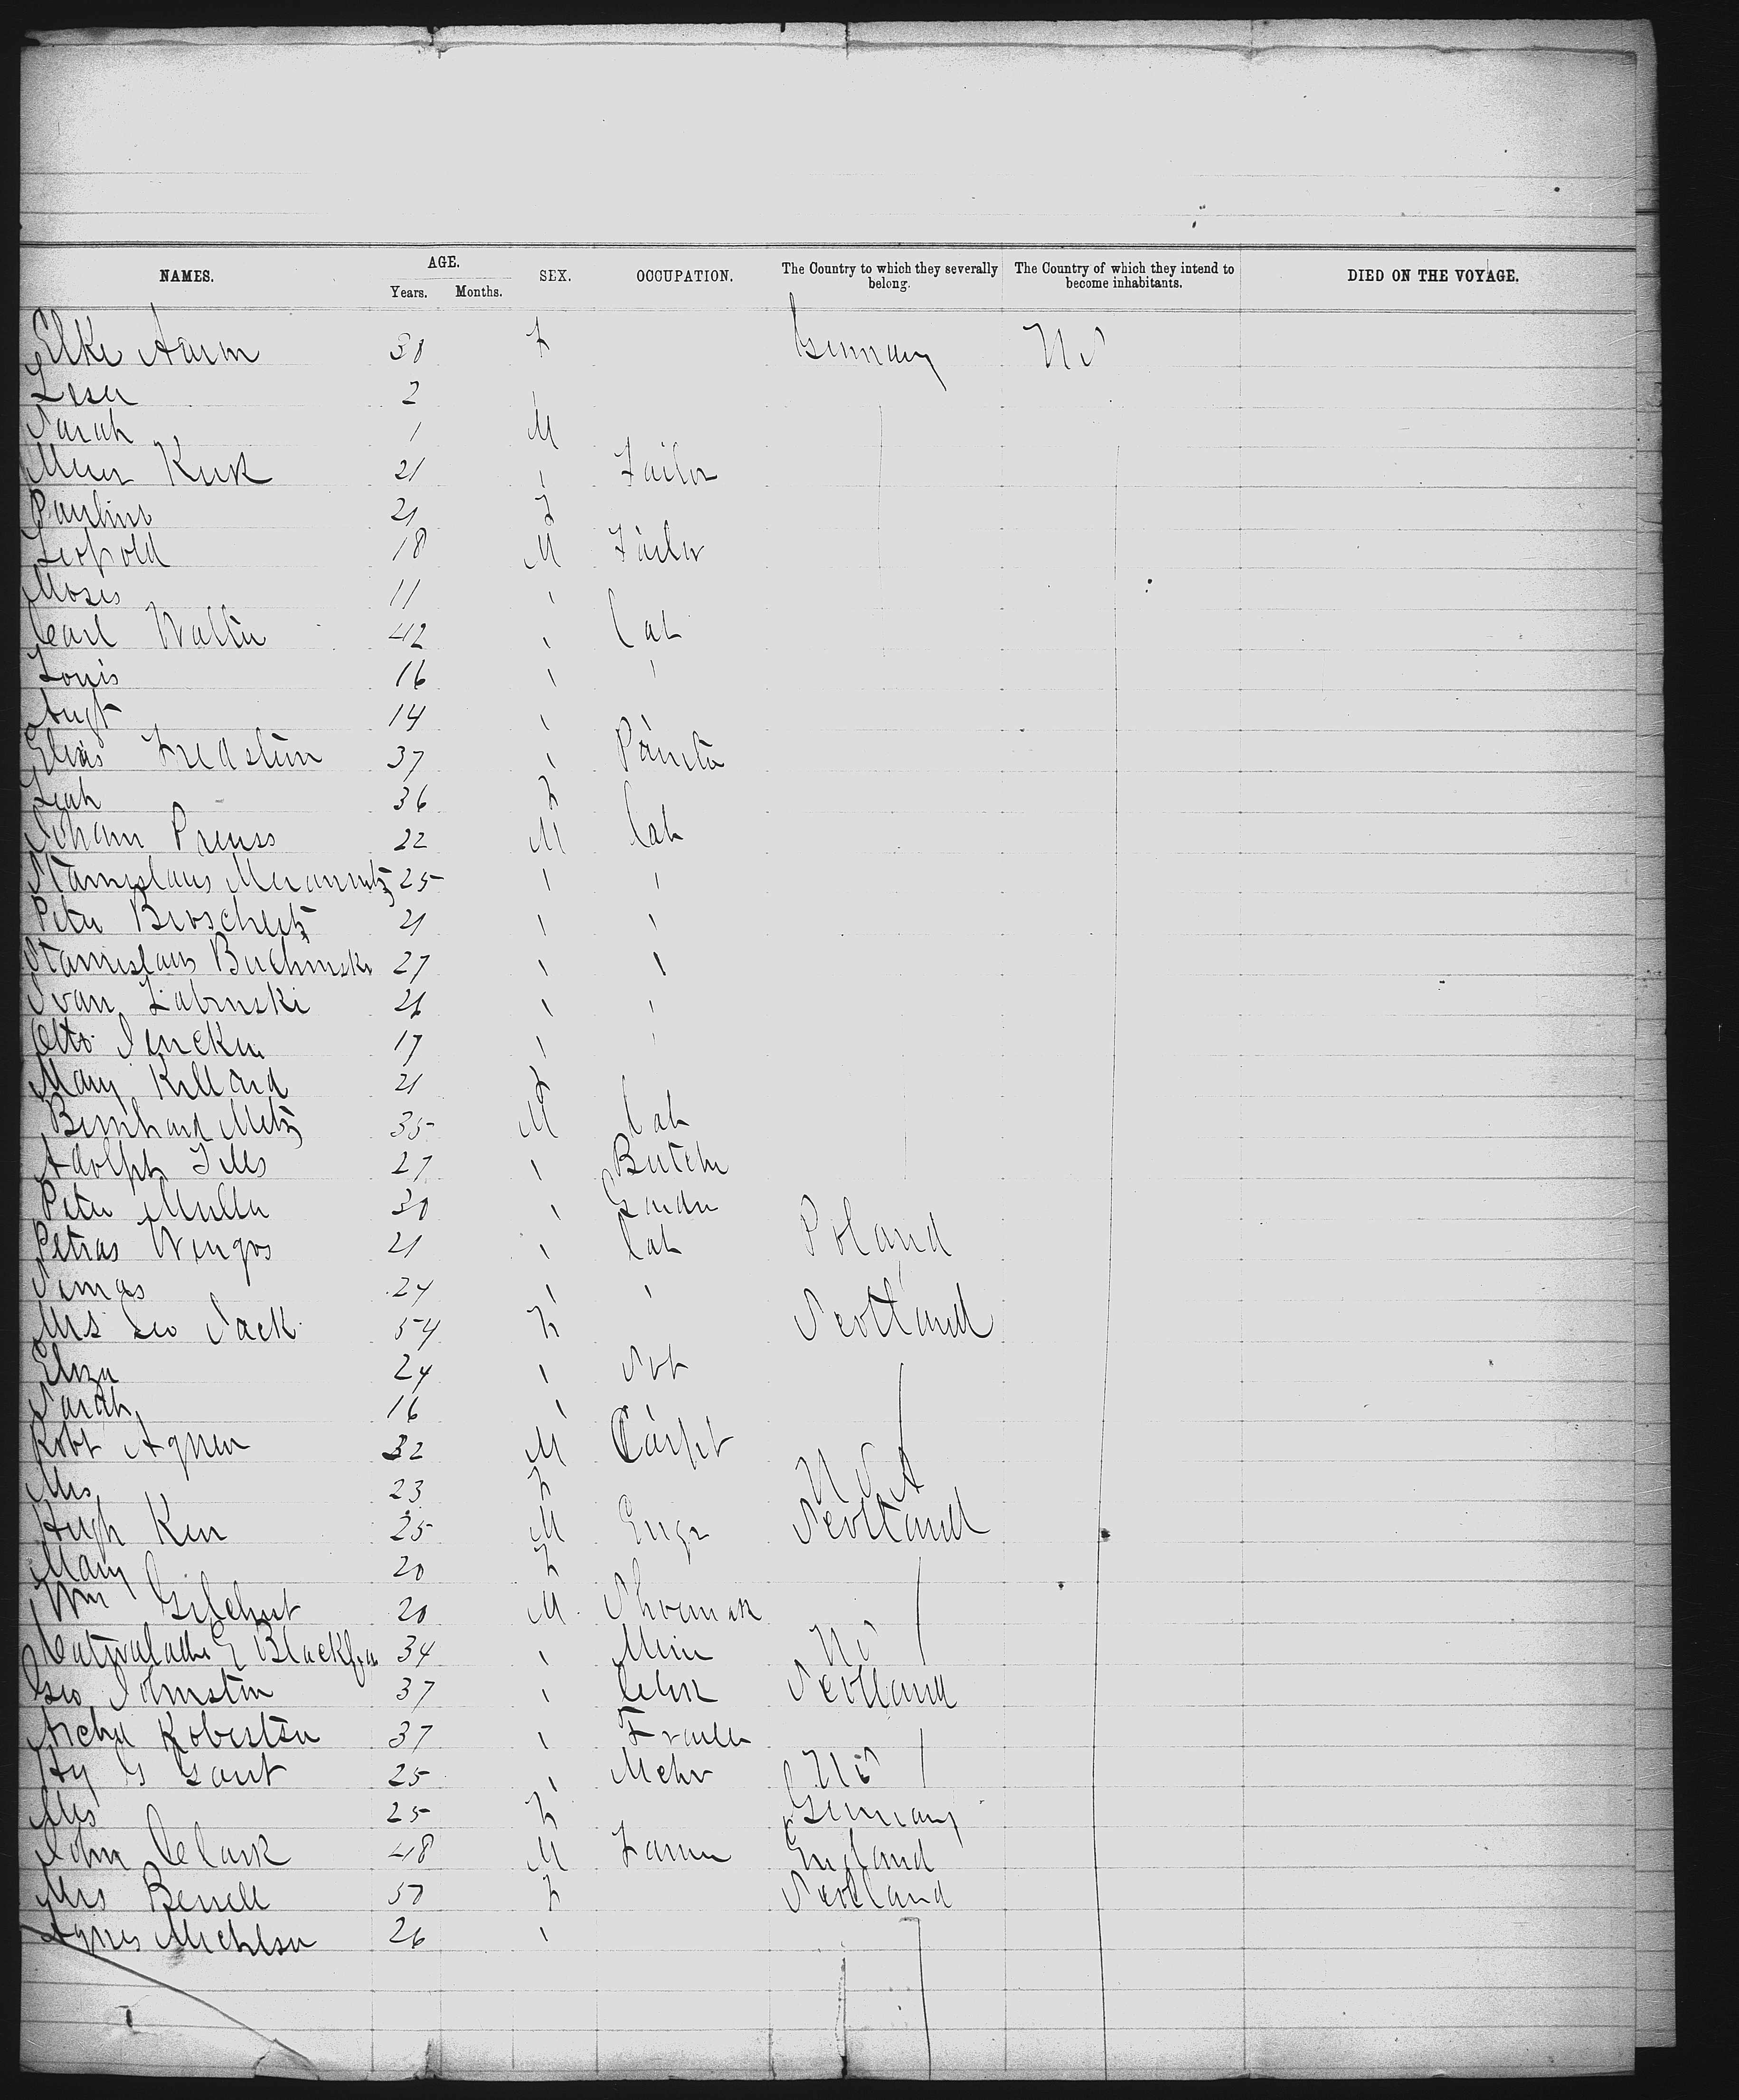 NAMES. AGE. Years. Months. SEX. OCCUPATION. The Country to which they severally belong. The Country of which they intend to become inhabitants. DIED ON THE VOYAGE.
Elke Aaron 30 F Germany US
Leser 2 "
Sarah 1 M
Meier Kusk 21 " Tailor
Pauline 21 F
Leopold 18 M Tailor
Moses 11 "
Carl Walter 42 " Lab
Louis 16 " "
Augt 14 "
Elias Fredstein 37 " Painter
Leah 36 F
Johann Preuss 22 M Lab
Stanislaus 25 " "
Peter 21 " "
Stanislaus Buchinski 27 " "
Ivan Labinski 26 " "
Otto 17 " "
Mary Killard 21 F
Bernhard Metz 35 M Lab
Adolph 27 " Butcher
Peter Muller 30 " Garder
Petras Wingos 21 " Lab Poland
Simas 24 " "
Mrs Geo Jack 54 F Scotland
Eliza 24 " Svt
Sarah 16 "
Robt Agnew 32 M Carpt
Mrs 23 F USA
Hugh Kerr 25 M Engr Scotland
Mary 20 F
Wm Gilchrist 20 M Shoemak
34 " Mine US
Geo Johnston 37 " Clerk Scotland
Archd Robertson 37 " Travller
Hy G Gant 25 " Mchr US
Mrs 25 F Germany
John Clark 48 M Farmer England
Mrs Berrell 50 F Scotland
Agnes Michlson 26 "